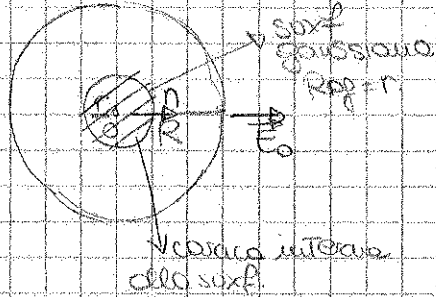 surf
gaussiana
Rag = r
r
n
O
R
E₀
carica interna
alla surf.